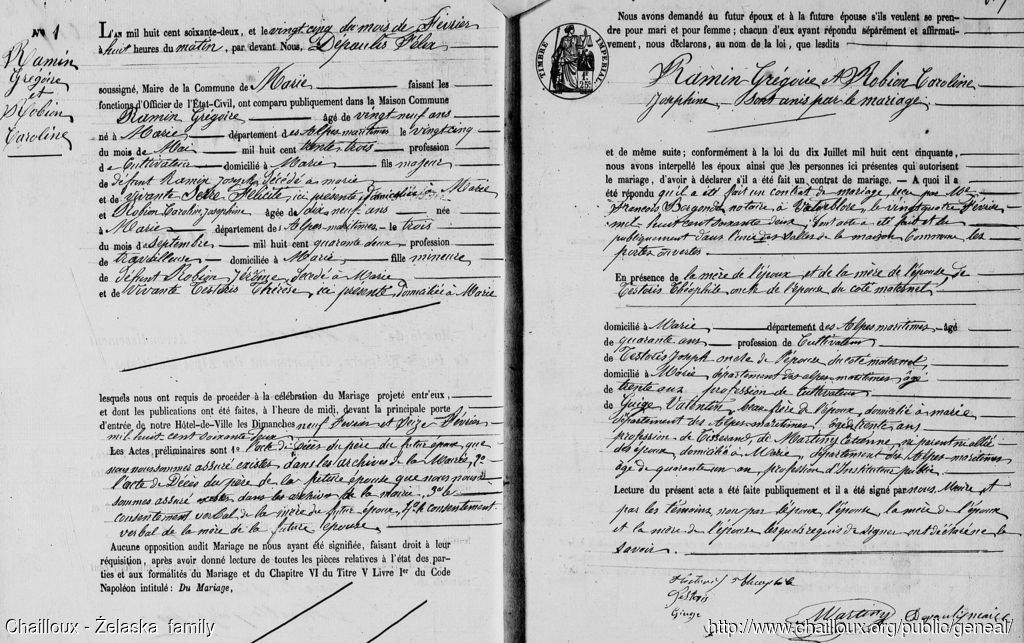 N° 1
Ramin
Grégoire
et
Robion
Caroline
LAN mil huit cent soixante-deux, et le vingt cinq du mois de Février
à huit heures du matin, par devant Nous, Depaulis Félix
soussigné, Maire de la Commune de Marie faisant les
fonctions d'Officier de l'État-Civil, ont comparu publiquement dans la Maison Commune
Ramin Grégoire âgé de vingt neuf ans
né à Marie département des Alpes maritimes le vingt cinq
du mois de Mai mil huit cent trente trois profession
de Cultivateur domicilié à Marie fils majeur
de défunt Ramin Joseph décédé à marie
et de vivante Félicité, ici présente, domiciliée à Marie
et Robion Caroline Josephine âgée de dix neuf ans née
à Marie département des Alpes maritimes le trois
du mois de Septembre mil huit cent quarante deux profession
de travailleuse domiciliée à Marie fille mineure
de défunt Robion Jérôme décédé à Marie
et de Vivante Testoris Thérèse, ici présente domiciliée à Marie
lesquels nous ont requis de procéder à la célébration du Mariage projeté entr'eux,
et dont les publications ont été faites, à l'heure de midi, devant la principale porte
d'entrée de notre Hôtel-de-Ville les Dimanches neuf Février et Seize Février
mil huit cent soixante deux
Les Actes préliminaires sont 1° l'acte de Décès du père du futur époux que
nous nous sommes assuré exister dans les archives de la Mairie, 2°
l'acte de Décès du père de la future épouse que nous nous
sommes assuré exister dans les archives de la mairie, 3° le
consentement verbal de la mère du futur époux, 4° le consentement
verbal de la mère de la future épouse.
Aucune opposition audit Mariage ne nous ayant été signifiée, faisant droit à leur
réquisition, après avoir donné lecture de toutes les pièces relatives à l'état des par-
ties et aux formalités du Mariage et du Chapitre VI du Titre V Livre Ier du Code
Napoléon intitulé : Du Mariage,
Nous avons demandé au futur époux et à la future épouse s'ils veulent se pren-
dre pour mari et pour femme ; chacun d'eux ayant répondu séparément et affirmati-
vement, nous déclarons, au nom de la loi, que lesdits
TIMBRE IMPERIAL
1f 25c
Ramin Grégoire et Robion Caroline
Josephine, sont unis par le mariage.
et de même suite ; conformément à la loi du dix Juillet mil huit cent cinquante,
nous avons interpellé les époux ainsi que les personnes ici présentes qui autorisent
le mariage, d'avoir à déclarer s'il a été fait un contrat de mariage. — A quoi il a
été répondu qu'il a été fait un contrat de mariage reçu par Me
François notaire, à Valdeblore, le vingt quatre Février
mil huit cent soixante deux, dont acte a été fait et lu
publiquement dans l'une des salles de la maison Commune les
portes ouvertes.
En présence de la mère de l'époux et de la mère de l'épouse, de
Testoris Théophile oncle de l'épouse du coté maternel
domicilié à Marie département des Alpes maritimes âgé
de quarante ans profession de Cultivateur
de Testoris Joseph oncle de l'épouse du coté maternel
domicilié à Marie, département des alpes maritimes âgé
de trente ans profession de Cultivateur
de Guige Valentin, beau frère de l'époux, domicilié à marie
département des Alpes maritimes, âgé de trente ans
profession de Tisserand, de Martiny Etienne, ni parent ni allié
des époux, domicilié à Marie, département des Alpes-maritimes
âgé de quarante un an, profession d'Instituteur public.
Lecture du présent acte a été faite publiquement et il a été signé par nous, Maire et
par les témoins, non par l'époux, l'épouse, la mère de l'époux
et la mère de l'épouse lesquels requis de signer ont déclaré ne le
savoir.
Testoris
Guige
Martiny
Depaulis maire
Chailloux - Želaska family
http://www.chailloux.org/public/geneal/